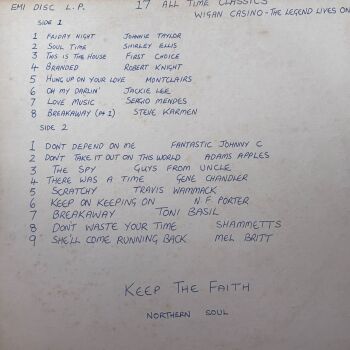 EMI DISC L.P. 17 ALL TIME CLASSICS
WIGAN CASINO - THE LEGEND LIVES ON
SIDE 1
1 FRIDAY NIGHT JOHNNIE TAYLOR
2 SOUL TIME SHIRLEY ELLIS
3 THIS IS THE HOUSE FIRST CHOICE
4 BRANDED ROBERT KNIGHT
5 HUNG UP ON YOUR LOVE MONTCLAIRS
6 OH MY DARLIN' JACKIE LEE
7 LOVE MUSIC SERGIO MENDES
8 BREAKAWAY (PT 1) STEVE KARMEN
SIDE 2
1 DONT DEPEND ON ME FANTASTIC JOHNNY C
2 DON'T TAKE IT OUT ON THIS WORLD ADAMS APPLES
3 THE SPY GUYS FROM UNCLE
4 THERE WAS A TIME GENE CHANDLER
5 SCRATCHY TRAVIS WAMMACK
6 KEEP ON KEEPING ON N.F. PORTER
7 BREAKAWAY TONI BASIL
8 DON'T WASTE YOUR TIME SHAMMETTS
9 SHE'LL COME RUNNING BACK MEL BRITT
KEEP THE FAITH
NORTHERN SOUL